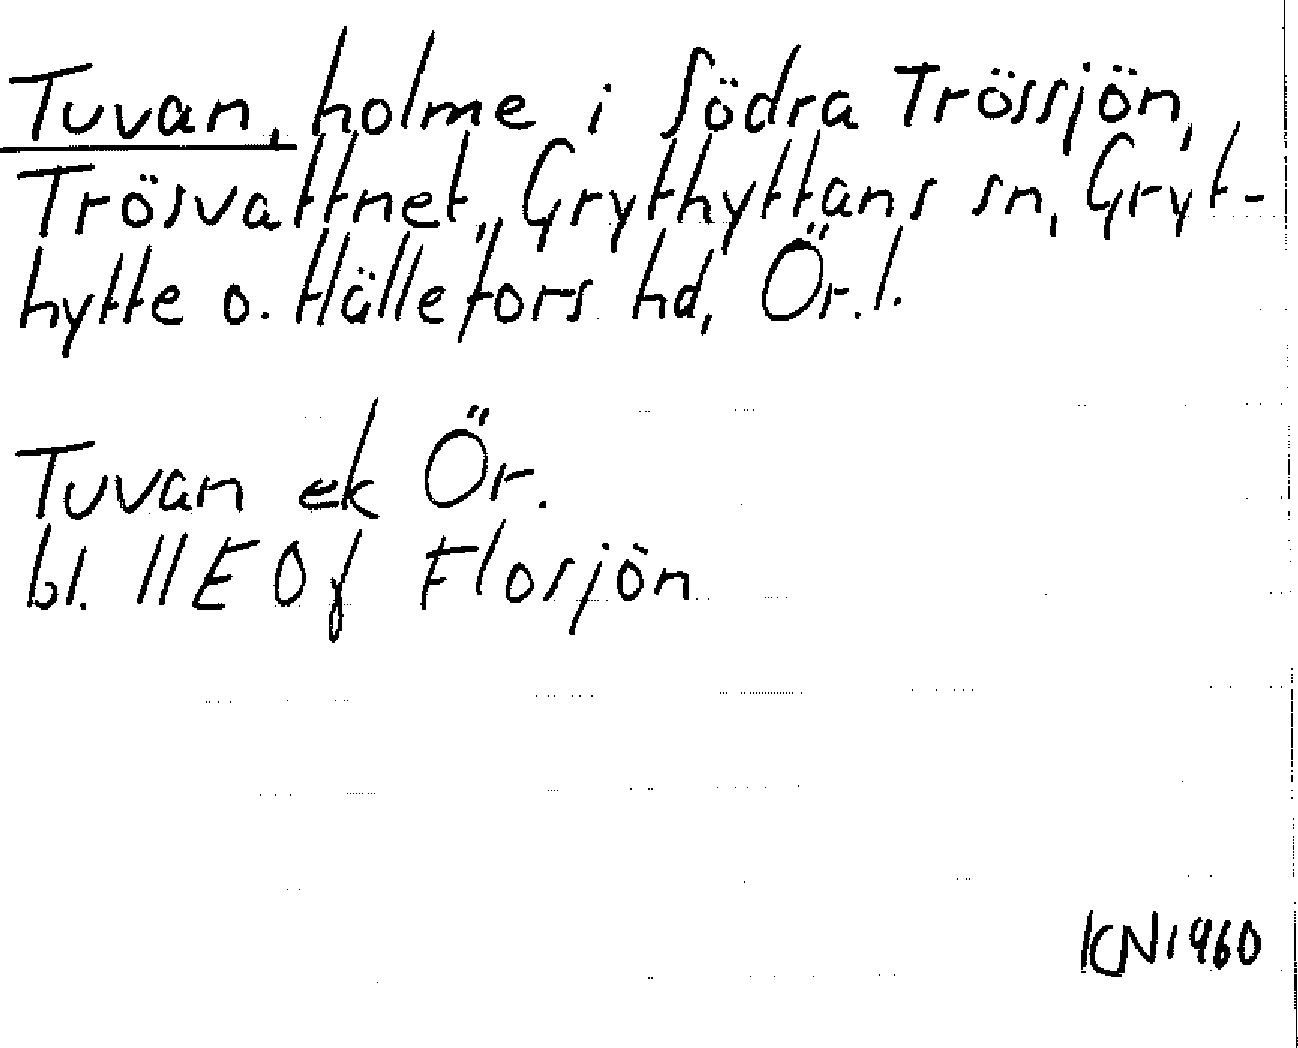 Tuvan, holme i Södra Trössjön,
Trösvattnet, Grythyttans sn, Gryt-
hytte o. Hällefors hd, Ör. l.
Tuvan ek Ör.
bl. 11E 0f Flosjön
KN 1960